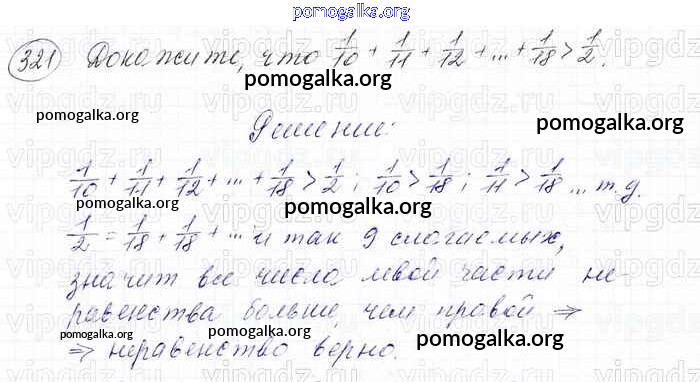 pomogalka.org
321) Докажите, что 1/10 + 1/11 + 1/12 + ... + 1/18 > 1/2.
pomogalka.org
pomogalka.org
pomogalka.org
Решение:
1/10 + 1/11 + 1/12 + ... + 1/18 > 1/2; 1/10 > 1/18; 1/11 > 1/18 ... т.д.
pomogalka.org
pomogalka.org
1/2 = 1/18 + 1/18 + ... и так 9 слагаемых,
значит все числа левой части не-
равенства больше, чем правой ⇒
pomogalka.org
pomogalka.org
pomogalka.org
⇒ неравенство верно.